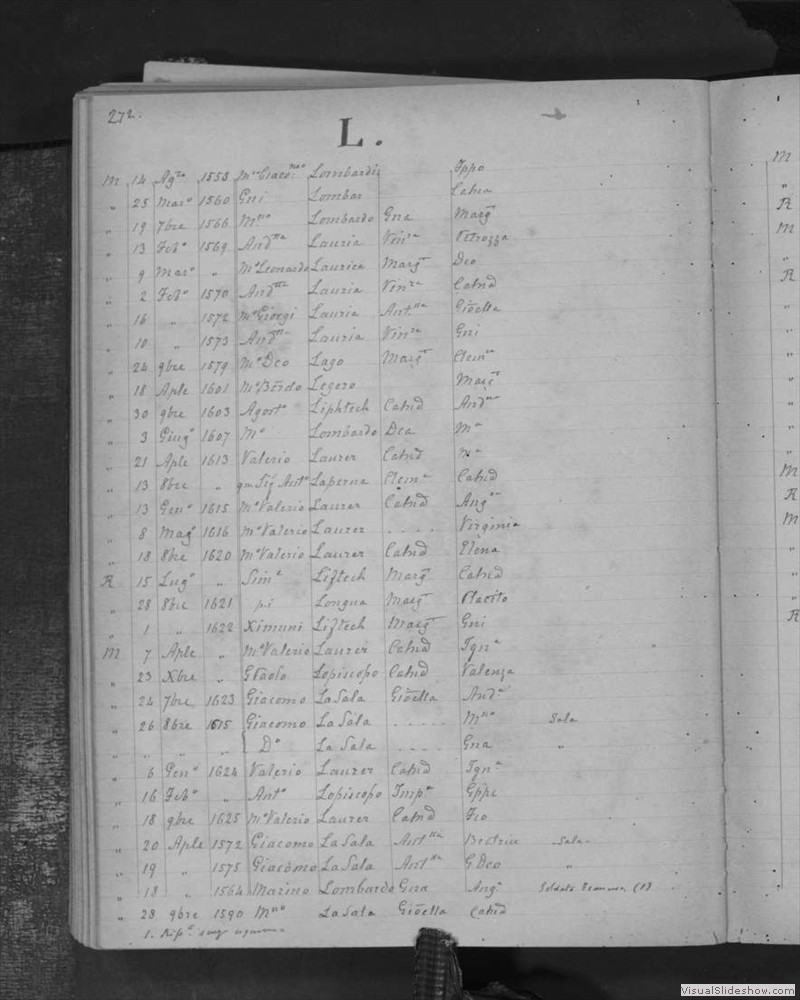 272.
L.
M 14 Agto 1553 Mo Giaco: Lombardis Ippo
" 25 Maro 1560 Gni Lombar Catna
" 19 7bre 1566 Mno Lombardo Gna Margta
" 13 Febo 1569 Andtta Lauria Vinza Petrozza
" 9 Maro " Mo Leonardo Laurica Margta Deo
" 2 Febo 1570 Andtta Lauria Vinza Catnd
" 16 " 1572 Mo Giorgi Lauria Anttta Gioëlla
" 10 " 1573 Andtta Lauria Vinza Gni
" 24 9bre 1579 Mo Deo Lago Margta Clemza
" 18 Aple 1601 Mo Berdo Legero Margta
" 30 9bre 1603 Agosto Liphtech Catnd Andtta
" 3 Giugo 1607 Mo Lombardo Dea Ma
" 21 Aple 1613 Valerio Laurer Catnd Ma
" 13 8bre " qm Sig Anto Laperna Clema Catnd
" 13 Geno 1615 Mo Valerio Laurer Catnd Anglo
" 8 Mago 1616 Mo Valerio Laurer . . . . Virginia
" 18 8bre 1620 Mo Valerio Laurer Catnd Elena
R 15 Lugo " Sime Liftech Margta Catnd
" 28 8bre 1621 pi Longua Margta Placito
" 1 " 1622 Ximuni Liftech Margta Gni
M 7 Aple " Mo Valerio Laurer Catnd Igna
" 23 Xbre " GPaolo Lopiscopo Catnd Valenza
" 24 7bre 1623 Giacomo La Sala Gioëlla Anda
" 26 8bre 1615 Giacomo La Sala . . . . . Mno Sala
" " " " { Do La Sala . . . . Gna "
" 6 Geno 1624 Valerio Laurer Catnd Igna
" 16 Febo " Anto Lopiscopo Impa Gppe
" 18 9bre 1625 Mo Valerio Laurer Catnd Fco
" 20 Aple 1572 Giacomo La Sala Anttta Beatrice Sala
" 19 " 1575 Giacomo La Sala Anttta GDeo "
" 18 " 1564 Marino Lombardo Gna Anga Soldato (1)
" 28 9bre 1590 Mno La Sala Gioëlla Catnd
VisualSlideshow.com